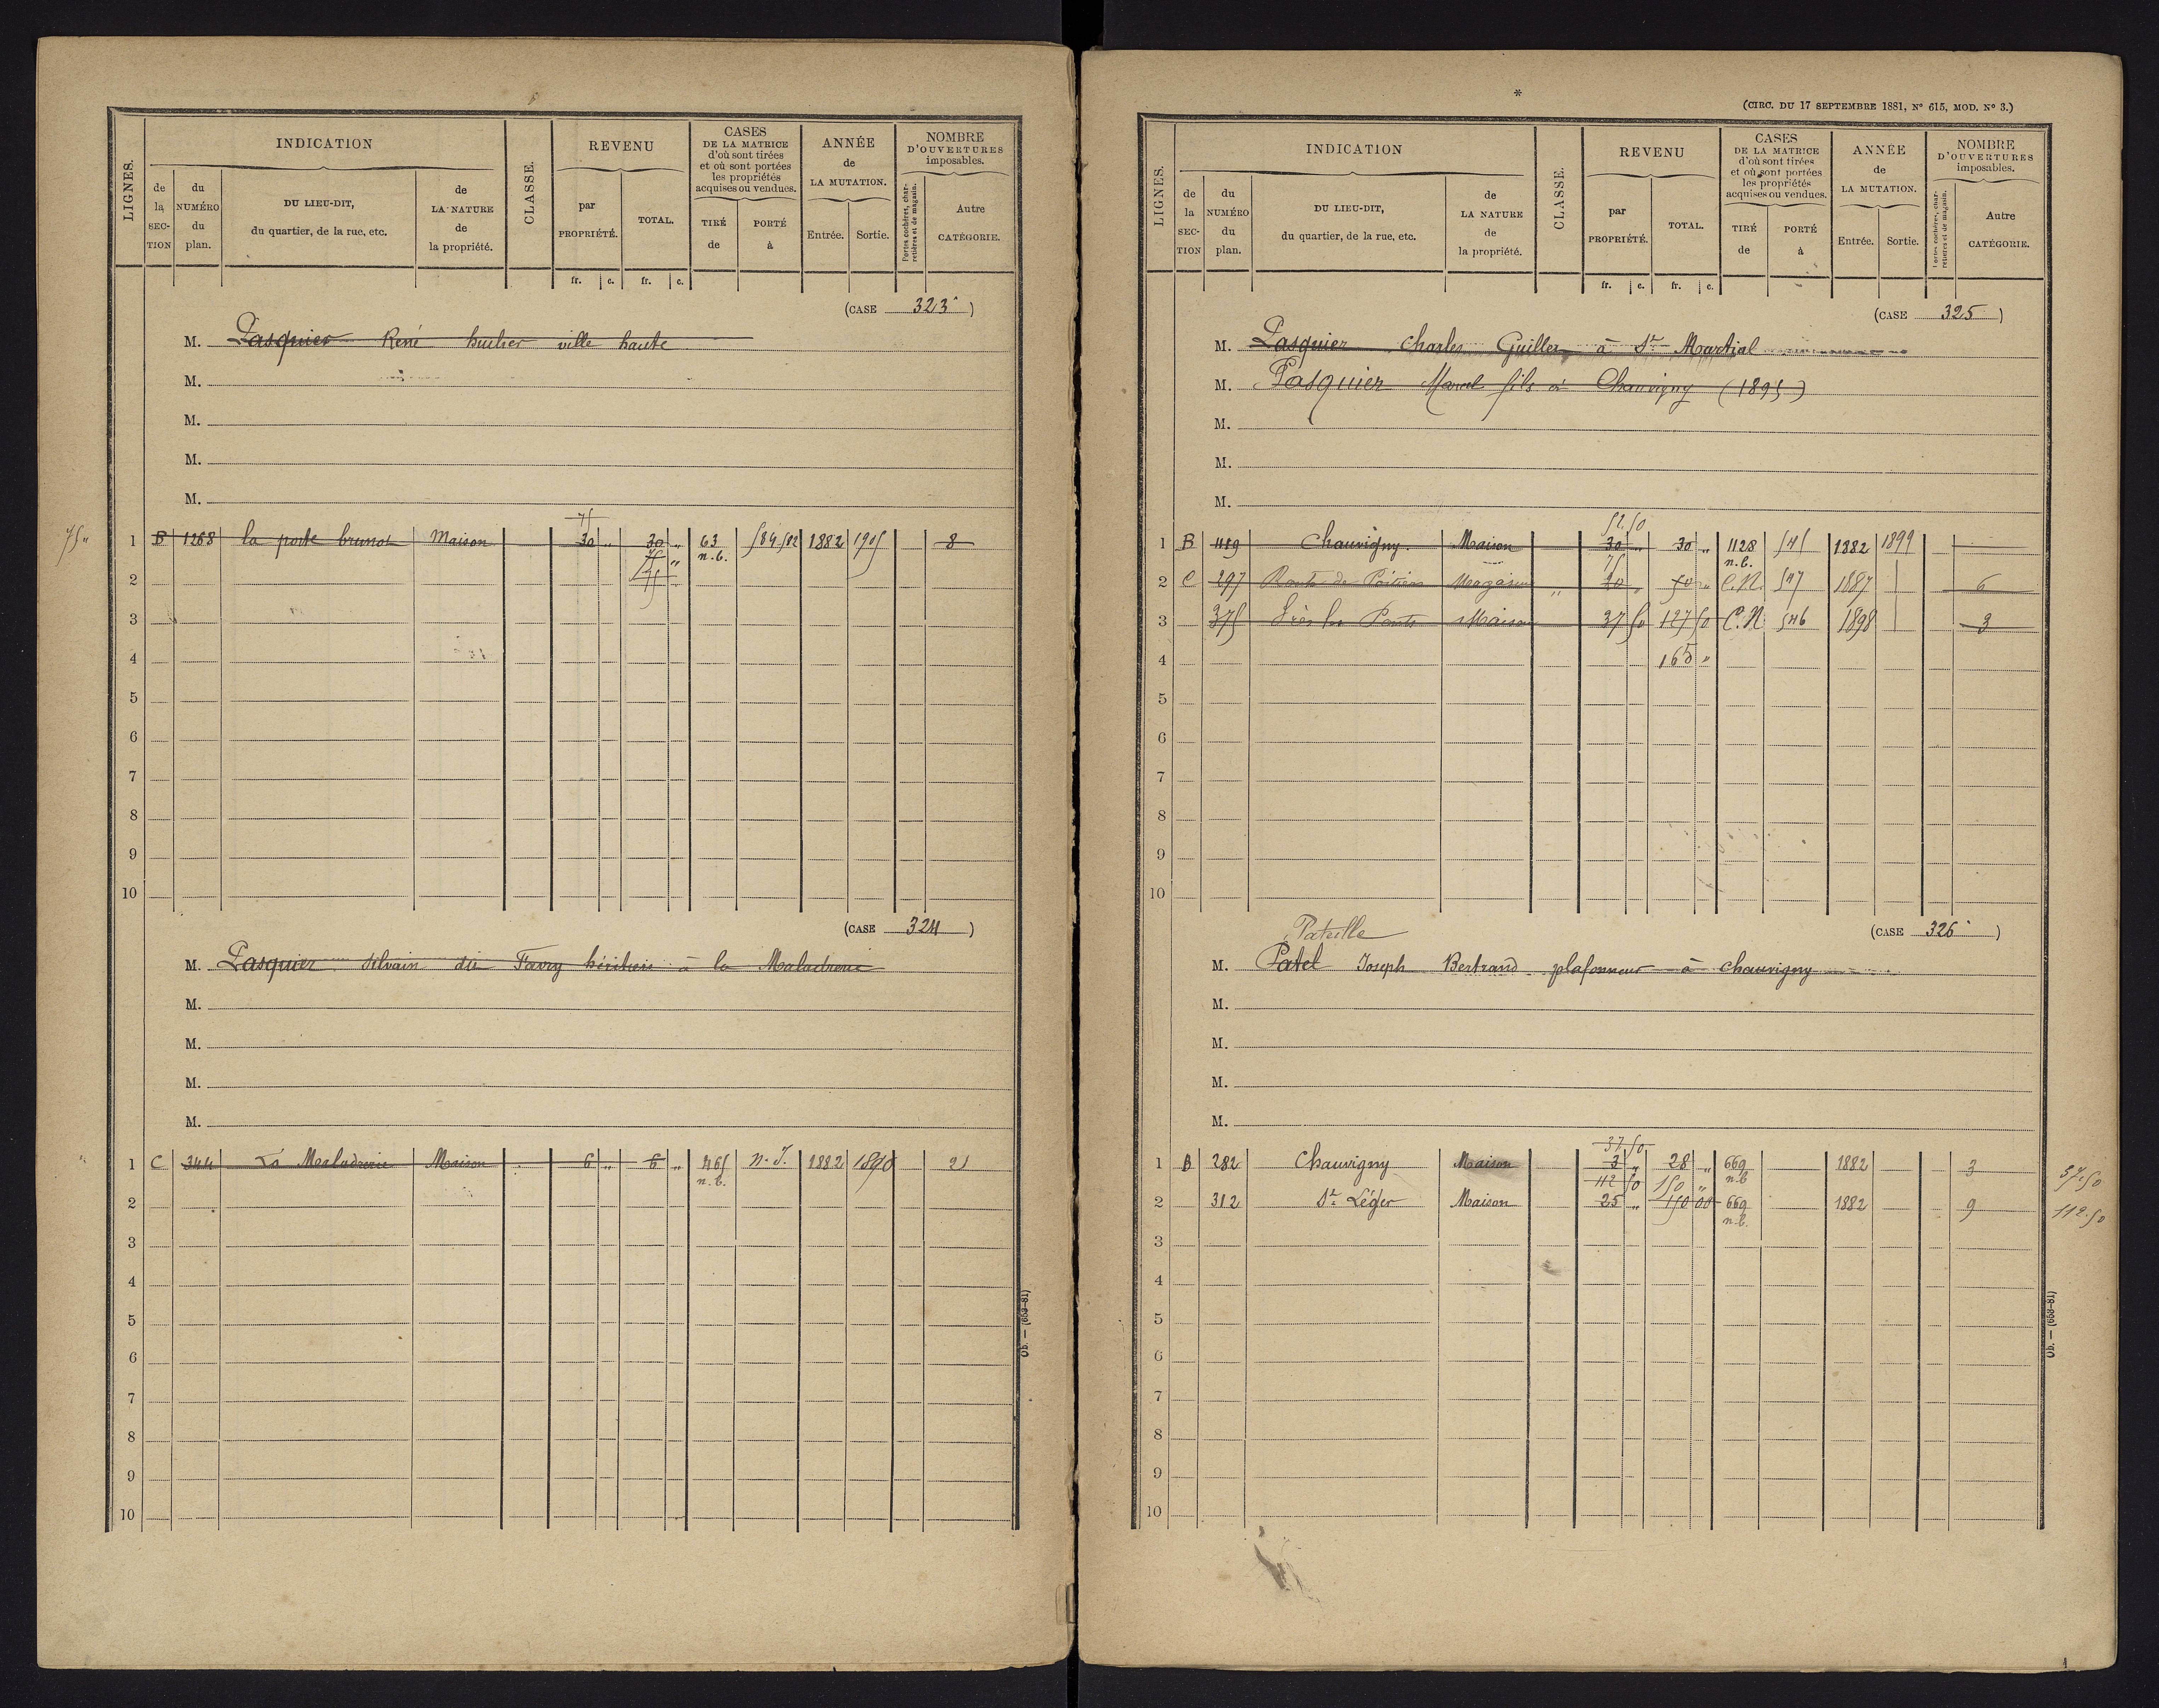 LIGNES.
INDICATION
de la SECTION
du NUMÉRO du plan.
DU LIEU-DIT, du quartier, de la rue, etc.
de LA NATURE de la propriété.
CLASSE.
REVENU
par PROPRIÉTÉ.
TOTAL.
CASES DE LA MATRICE d'où sont tirées et où sont portées les propriétés acquises ou vendues.
TIRÉ de
PORTÉ à
ANNÉE de LA MUTATION.
Entrée.
Sortie.
NOMBRE D'OUVERTURES imposables.
Portes cochères, charretières et de magasin.
Autre CATÉGORIE.
fr. c. fr. c.
(CASE 323)
M. Pasquier René huilier ville haute
M.
M.
M.
M.
75
75 "
1 B 1268 la porte brunot Maison 30 " 30 " 63 584 582 1882 1905 8
75 " n.b.
2
3
4
5
6
7
8
9
10
(CASE 324)
M. Pasquier Silvain dit Favry héritiers à la Maladrerie
M.
M.
M.
M.
1 C 344 La Maladrerie Maison 6 " 6 " 465 n.I. 1882 1890 21
n.b.
2
3
4
5
6
7
8
9
10
Ob. — (653-81)
*
(CIRC. DU 17 SEPTEMBRE 1881, N° 615, MOD. N° 3.)
LIGNES.
INDICATION
de la SECTION
du NUMÉRO du plan.
DU LIEU-DIT, du quartier, de la rue, etc.
de LA NATURE de la propriété.
CLASSE.
REVENU
par PROPRIÉTÉ.
TOTAL.
CASES DE LA MATRICE d'où sont tirées et où sont portées les propriétés acquises ou vendues.
TIRÉ de
PORTÉ à
ANNÉE de LA MUTATION.
Entrée.
Sortie.
NOMBRE D'OUVERTURES imposables.
Portes cochères, charretières et de magasin.
Autre CATÉGORIE.
fr. c. fr. c.
(CASE 325)
M. Pasquier Charles Guiller à St Martial
M. Pasquier Marcel fils à Chauvigny (1895)
M.
M.
M.
52.50
1 B 419 Chauvigny. Maison 30 " 30 " 1128 545 1882 1899
75 n.b.
2 C 297 Route de Poitiers Magasin " 20 " 50 " C.N. 547 1887 6
3 375 Près les Ponts Maison 37 50 127 50 C.N 546 1898 3
4 165 "
5
6
7
8
9
10
(CASE 326)
Pateille
M. Patel Joseph Bertrand plafonneur à chauvigny
M.
M.
M.
M.
37 50
1 B 282 Chauvigny Maison 3 " 28 " 669 1882 3 37.50
112 50 150 " n.b
2 312 St Léger Maison 25 " 150 00 669 1882 9 112.50
n.b.
3
4
5
6
7
8
9
10
Ob. — (653-81)